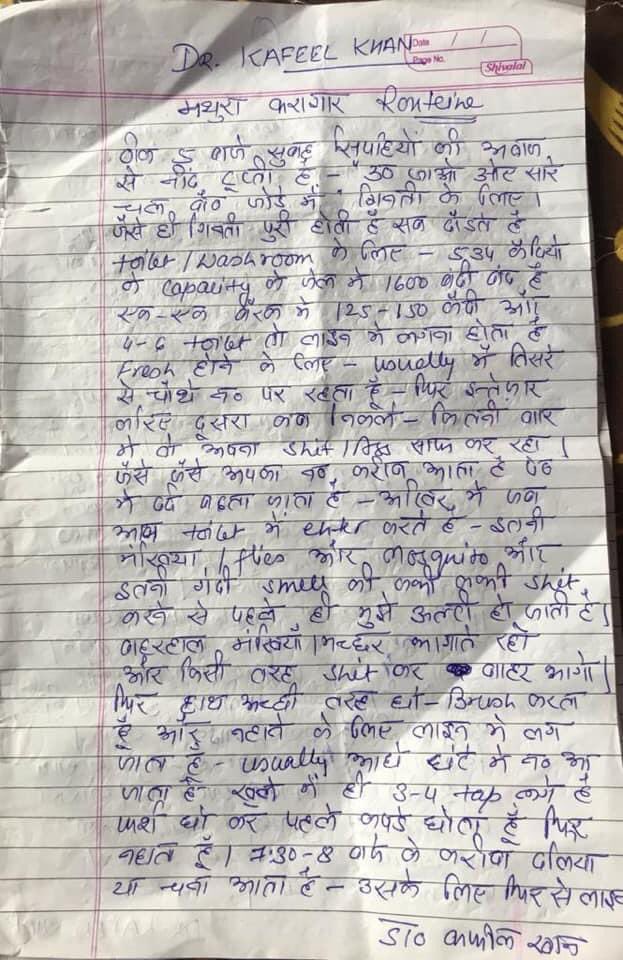 DR. KAFEEL KHAN
Date / /
Page No.
Shivalal
मथुरा कारागार Routeine
ठीक 5 बजे सुबह सिपाहियों की आवाज
से नींद टूटती है - "उठ जाओ और सारे
चल बैठ जोड़े में" गिनती के लिए।
जैसे ही गिनती पुरी होती है सब दौड़ते है
toilet/washroom के लिए - 534 कैदियो
की capacity के जेल मे 1600 बंदी बंद है
एक-एक बैरक मे 125-150 कैदी और
4-6 toilet तो लाइन मे लगना होता है
Fresh होने के लिए - usually मैं तिसरे
से चौथे न० पर रहता हूँ - फिर इन्तेजार
करिए दूसरा कब निकले - कितनी बार
मे वो अपना shit / साफ कर रहा।
जैसे जैसे आपका न० करीब आता है पेट
मे दर्द बढता जाता है - आखिर मे जब
आप toilet मे enter करते है - इतनी
मंखिया / flies और mosquito और
इतनी गंदी smell की कभी कभी shit
करने से पहले ही मुझे उल्टी हो जाती है।
बहरहाल मंखियाँ/मच्छर भागाते रहो
और किसी तरह shit कर बाहर भागो।
फिर हाथ अच्छी तरह धो - Brush करता
हूँ और नहाने के लिए लाइन मे लग
जाता हूँ - usually आधे घंटे मे न० आ
जाता है खुले में ही 3-4 tap लगे है
फर्श धो कर पहले कपडे धोता हूँ फिर
नहाता हूँ। 7:30-8 बजे के करीब दलिया
या चना आता है - उसके लिए फिर से लाइन
डा० कफील खान